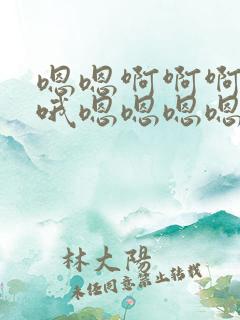 嗯嗯啊啊啊
哦嗯嗯嗯嗯
林大陽
未经同意禁止转载